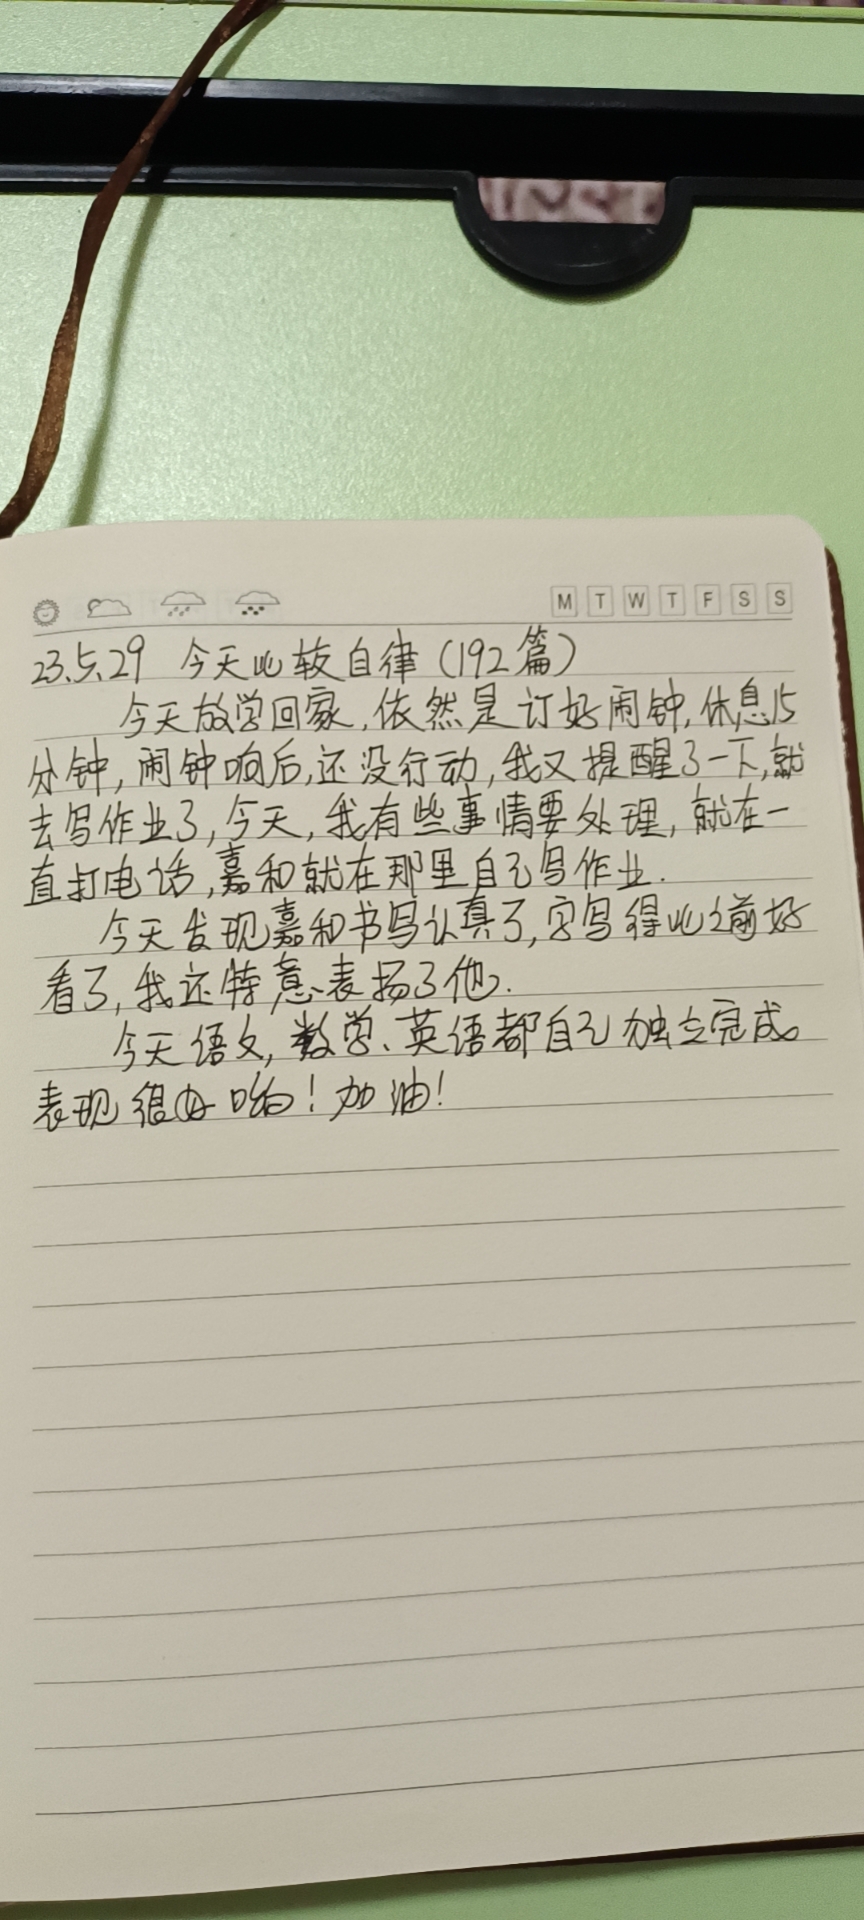 M T W T F S S
23.5.29 今天比较自律(192篇)
今天放学回家,依然是订好闹钟,休息15
分钟,闹钟响后,还没行动,我又提醒了一下,就
去写作业了,今天,我有些事情要处理,就在一
直打电话,嘉和就在那里自己写作业.
今天发现嘉和书写认真了,字写得比之前好
看了,我还特意表扬了他.
今天语文,数学、英语都自己独立完成。
表现很好哟!加油!